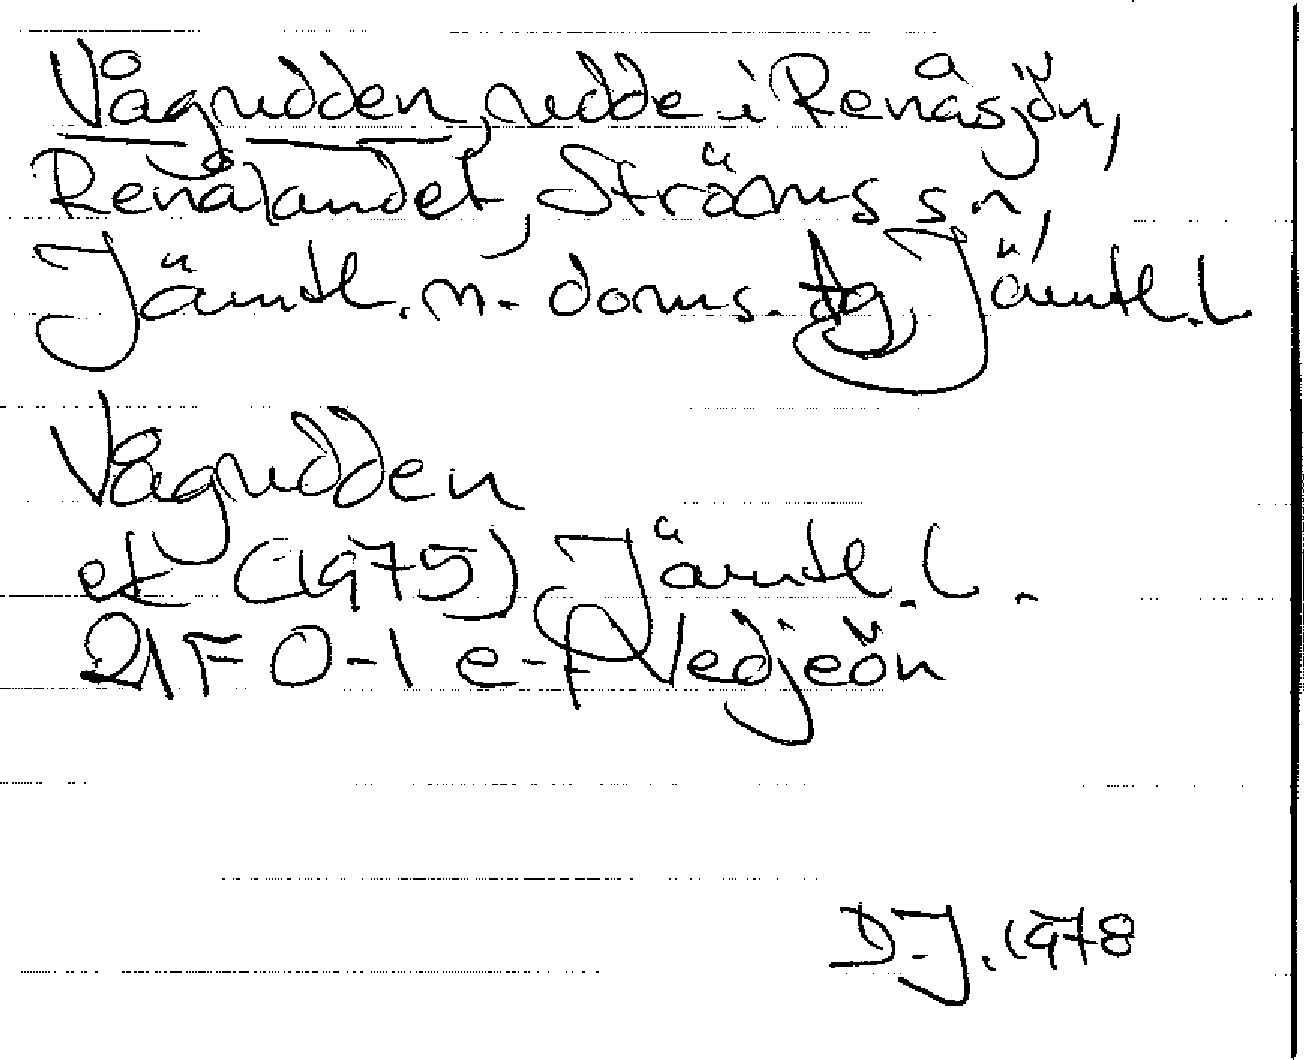 Vågudden, udde i Renåsjön,
Renålandet, Ströms sn,
Jämtl. n. doms. tg Jämtl. l
Vågudden
ek (1975) Jämtl. l.
21F 0-1 e-f Vedjeön
D.J. 1978